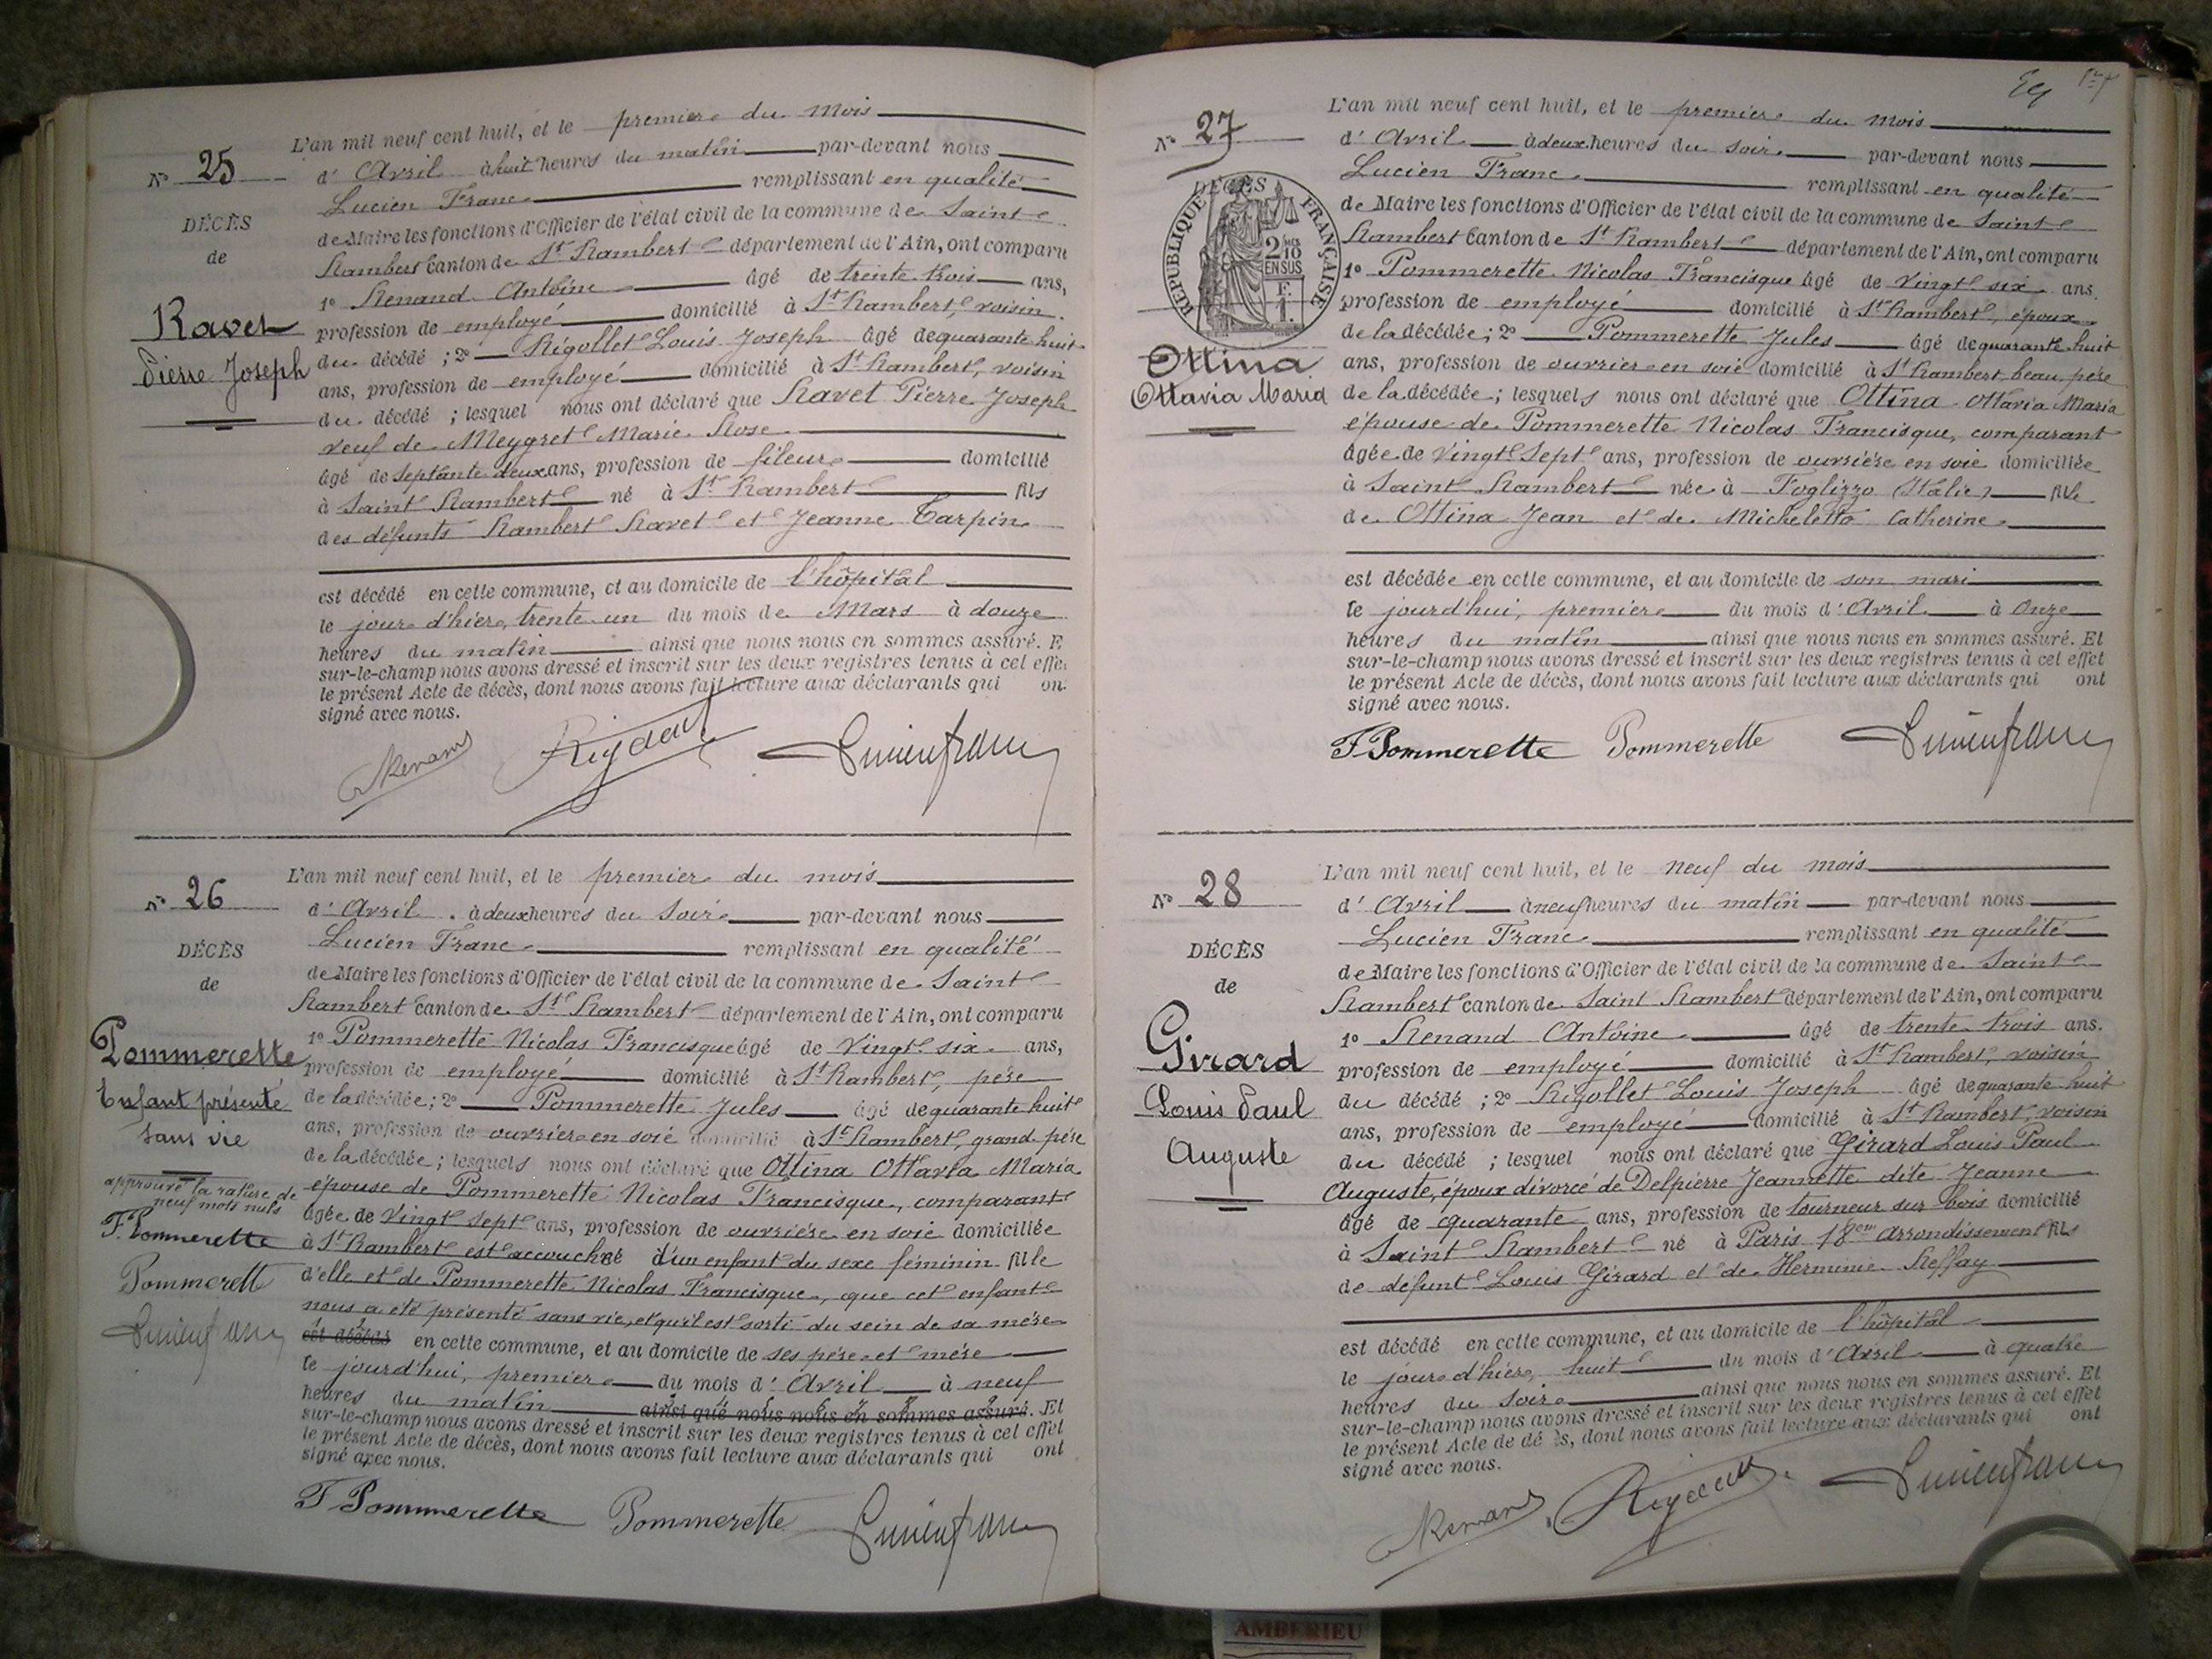 N° 25
DÉCÈS
de
Ravet
Pierre Joseph
L'an mil neuf cent huit, et le premier du mois
d'Avril à huit heures du matin par-devant nous
Lucien Franc remplissant en qualité
de Maire les fonctions d'Officier de l'état civil de la commune de Saint
Rambert Canton de St Rambert département de l'Ain, ont comparu
1° Renand Antoine âgé de trente trois ans,
profession de employé domicilié à St Rambert, voisin
du décédé ; 2° Rigollet Louis Joseph âgé de quarante huit
ans, profession de employé domicilié à St Rambert, voisin
du décédé ; lesquel nous ont déclaré que Ravet Pierre Joseph
veuf de Meygret Marie Rose
âgé de septante deux ans, profession de fileur domicilié
à Saint Rambert né à St Rambert fils
des défunts Rambert Ravet et Jeanne Tarpin
est décédé en cette commune, et au domicile de l'hôpital
le jour d'hier, trente un du mois de Mars à douze
heures du matin ainsi que nous nous en sommes assuré. E
sur-le-champ nous avons dressé et inscrit sur les deux registres tenus à cet effe
le présent Acte de décès, dont nous avons fait lecture aux déclarants qui on
signé avec nous.
Renand Lucien franc
N° 26
DÉCÈS
de
Pommerette
Enfant présenté
sans vie
approuvé la rature de
neuf mots nuls
F. Pommerette
Pommerette
Lucien franc
L'an mil neuf cent huit, et le premier du mois
d'Avril à deux heures du soir par-devant nous
Lucien Franc remplissant en qualité
de Maire les fonctions d'Officier de l'état civil de la commune de Saint
Rambert Canton de St Rambert département de l'Ain, ont comparu
1° Pommerette Nicolas Francisque âgé de vingt six ans,
profession de employé domicilié à St Rambert, père
de la décédée ; 2° Pommerette Jules âgé de quarante huit
ans, profession de ouvrier en soie domicilié à St Rambert, grand père
de la décédée ; lesquels nous ont déclaré que Ottina Ottavia Maria
épouse de Pommerette Nicolas Francisque, comparant
âgée de vingt sept ans, profession de ouvrière en soie domiciliée
à St Rambert est accouchée d'un enfant du sexe féminin fille
d'elle et de Pommerette Nicolas Francisque, que cet enfant
nous a été présenté sans vie, et qu'il est sorti du sein de sa mère
est décédé en cette commune, et au domicile de ses père et mère
le jourd'hui, premier du mois d'Avril à neuf
heures du matin ainsi que nous nous en sommes assuré. Et
sur-le-champ nous avons dressé et inscrit sur les deux registres tenus à cet effet
le présent Acte de décès, dont nous avons fait lecture aux déclarants qui ont
signé avec nous.
F Pommerette Pommerette Lucien franc
N° 27
DÉCÈS
RÉPUBLIQUE FRANÇAISE
2/10 EN SUS
F.
1.
Ottina
Ottavia Maria
L'an mil neuf cent huit, et le premier du mois
d'Avril à deux heures du soir par-devant nous
Lucien Franc remplissant en qualité
de Maire les fonctions d'Officier de l'état civil de la commune de Saint
Rambert Canton de St Rambert département de l'Ain, ont comparu
1° Pommerette Nicolas Francisque âgé de vingt six ans.
profession de employé domicilié à St Rambert, époux
de la décédée ; 2° Pommerette Jules âgé de quarante huit
ans, profession de ouvrier en soie domicilié à St Rambert, beau père
de la décédée ; lesquels nous ont déclaré que Ottina Ottavia Maria
épouse de Pommerette Nicolas Francisque, comparant
âgée de vingt sept ans, profession de ouvrière en soie domiciliée
à Saint Rambert née à Foglizzo (Italie) fille
de Ottina Jean et de Micheletto Catherine
est décédée en cette commune, et au domicile de son mari
le jourd'hui, premier du mois d'Avril à onze
heures du matin ainsi que nous nous en sommes assuré. Et
sur-le-champ nous avons dressé et inscrit sur les deux registres tenus à cet effet
le présent Acte de décès, dont nous avons fait lecture aux déclarants qui ont
signé avec nous.
F. Pommerette Pommerette Lucien franc
N° 28
DÉCÈS
de
Girard
Louis Paul
Auguste
L'an mil neuf cent huit, et le neuf du mois
d'Avril à neuf heures du matin par-devant nous
Lucien Franc remplissant en qualité
de Maire les fonctions d'Officier de l'état civil de la commune de Saint
Rambert canton de Saint Rambert département de l'Ain, ont comparu
1° Renand Antoine âgé de trente trois ans.
profession de employé domicilié à St Rambert, voisin
du décédé ; 2° Rigollet Louis Joseph âgé de quarante huit
ans, profession de employé domicilié à St Rambert, voisin
du décédé ; lesquel nous ont déclaré que Girard Louis Paul
Auguste, époux divorcé de Delpierre Jeannette dite Jeanne
âgé de quarante ans, profession de tourneur sur bois domicilié
à Saint Rambert né à Paris 18em arrondissement fils
de défunt Louis Girard et de Herminie Reffay
est décédé en cette commune, et au domicile de l'hôpital
le jour d'hier, huit du mois d'Avril à quatre
heures du soir ainsi que nous nous en sommes assuré. Et
sur-le-champ nous avons dressé et inscrit sur les deux registres tenus à cet effet
le présent Acte de dé ès, dont nous avons fait lecture aux déclarants qui ont
signé avec nous.
Renand Lucien franc
AMBERIEU